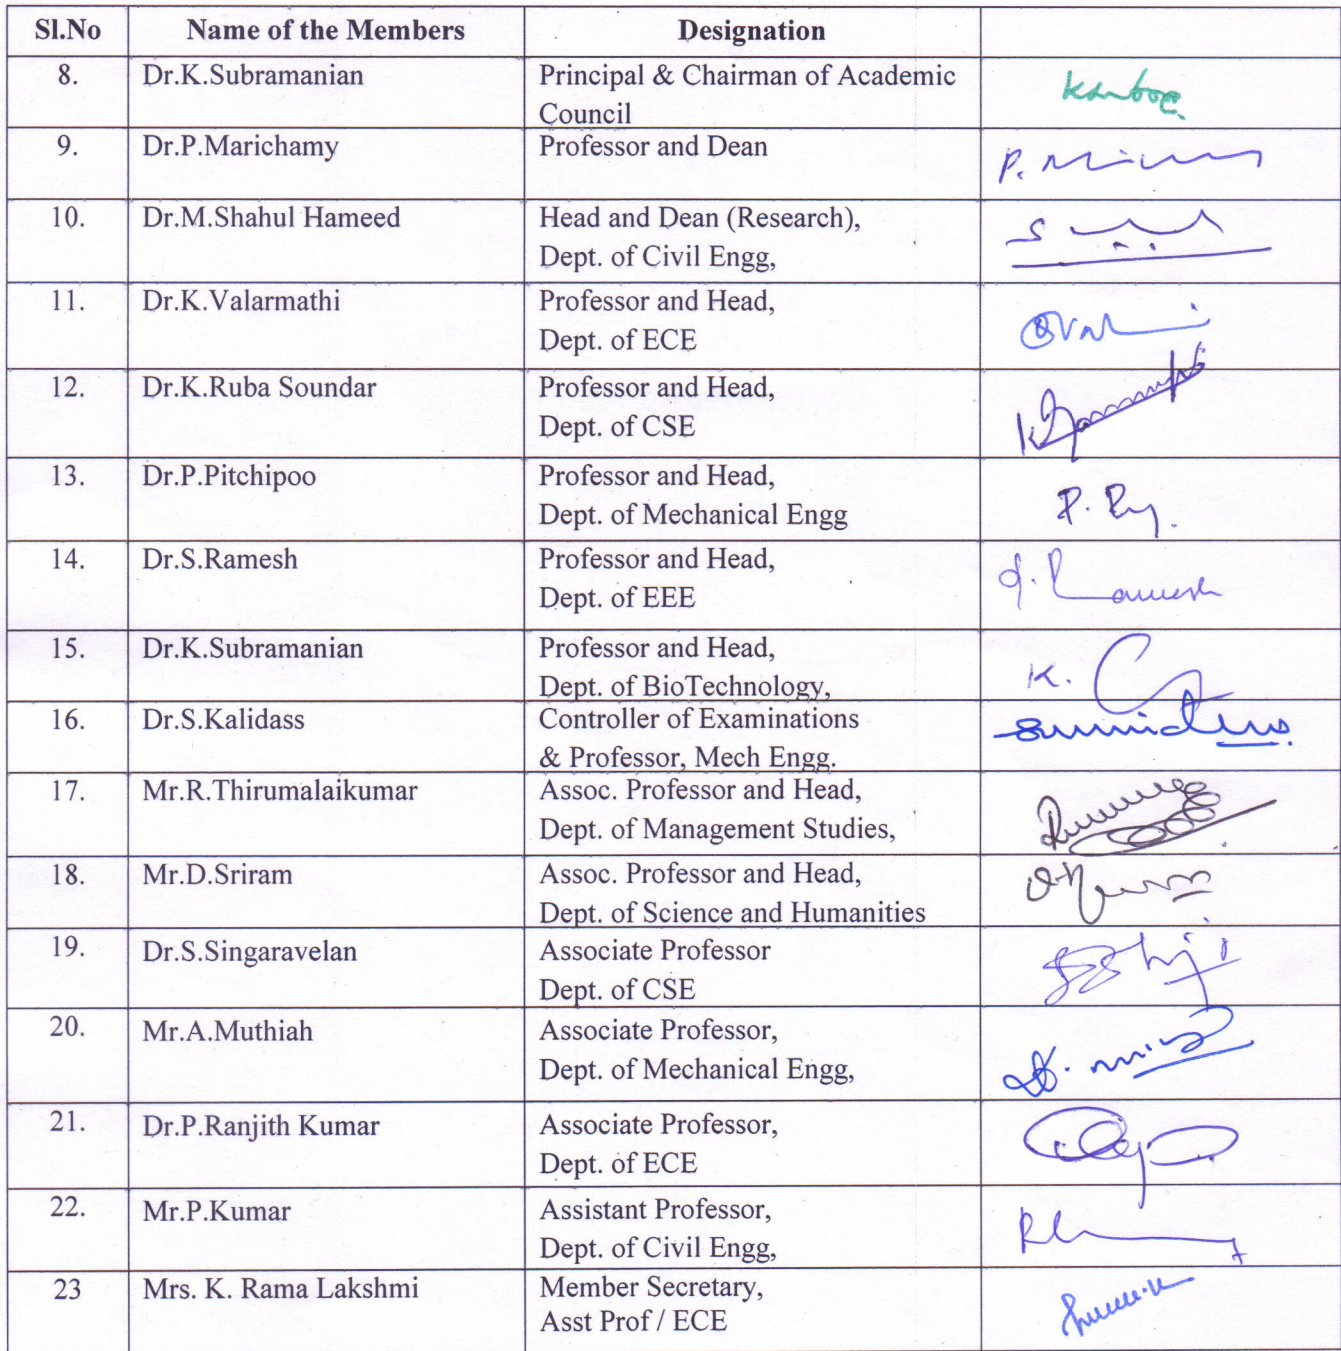 Sl.No Name of the Members Designation
8. Dr.K.Subramanian Principal & Chairman of Academic
Council
9. Dr.P.Marichamy Professor and Dean
10. Dr.M.Shahul Hameed Head and Dean (Research),
Dept. of Civil Engg,
11. Dr.K.Valarmathi Professor and Head,
Dept. of ECE
12. Dr.K.Ruba Soundar Professor and Head,
Dept. of CSE
13. Dr.P.Pitchipoo Professor and Head,
Dept. of Mechanical Engg
14. Dr.S.Ramesh Professor and Head,
Dept. of EEE
15. Dr.K.Subramanian Professor and Head,
Dept. of BioTechnology,
16. Dr.S.Kalidass Controller of Examinations
& Professor, Mech Engg.
17. Mr.R.Thirumalaikumar Assoc. Professor and Head,
Dept. of Management Studies,
18. Mr.D.Sriram Assoc. Professor and Head,
Dept. of Science and Humanities
19. Dr.S.Singaravelan Associate Professor
Dept. of CSE
20. Mr.A.Muthiah Associate Professor,
Dept. of Mechanical Engg,
21. Dr.P.Ranjith Kumar Associate Professor,
Dept. of ECE
22. Mr.P.Kumar Assistant Professor,
Dept. of Civil Engg,
23 Mrs. K. Rama Lakshmi Member Secretary,
Asst Prof / ECE